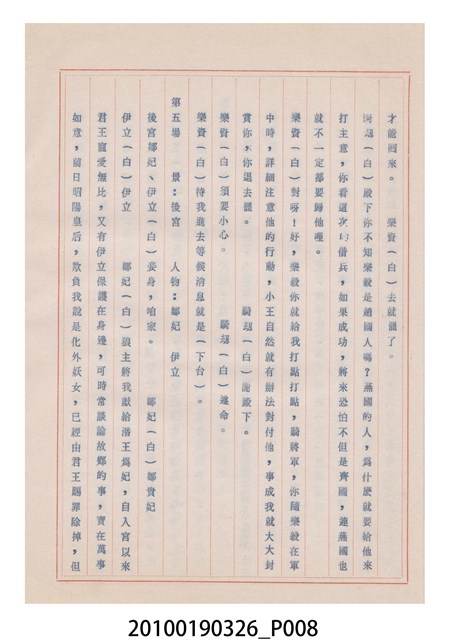 才能回來。　樂資(白)去就是了。
騎劫(白)殿下你不知樂毅是趙國人嗎?燕國的人,爲什麽就要給他來
打主意,你看這次的借兵,如果成功,將來恐怕不但是齊國,連燕國也
就不一定都要歸他哩。
樂資(白)對呀!好,樂毅你就給我打點打點,騎將軍,你隨樂毅在軍
中時,詳細注意他的行動,小王自然就有辦法對付他,事成我就大大封
賞你,你退去罷。　騎劫(白)謝殿下。
樂資(白)須要小心。　騎劫(白)遵命。
樂資(白)待我進去等候消息就是(下台)。
第五場　景:後宮　人物:鄒妃　伊立
後宮鄒妃、伊立(白)妾身,咱家。　鄒妃(白)鄒貴妃
伊立(白)伊立　鄒妃(白)狼主將我獻給湣王爲妃,自入宮以來
君王寵愛無比,又有伊立保護在身邊,可時常談論故鄉的事,實在萬事
如意,前日昭陽皇后,欺負我說是化外妖女,已經由君王賜罪除掉,但
20100190326_P008